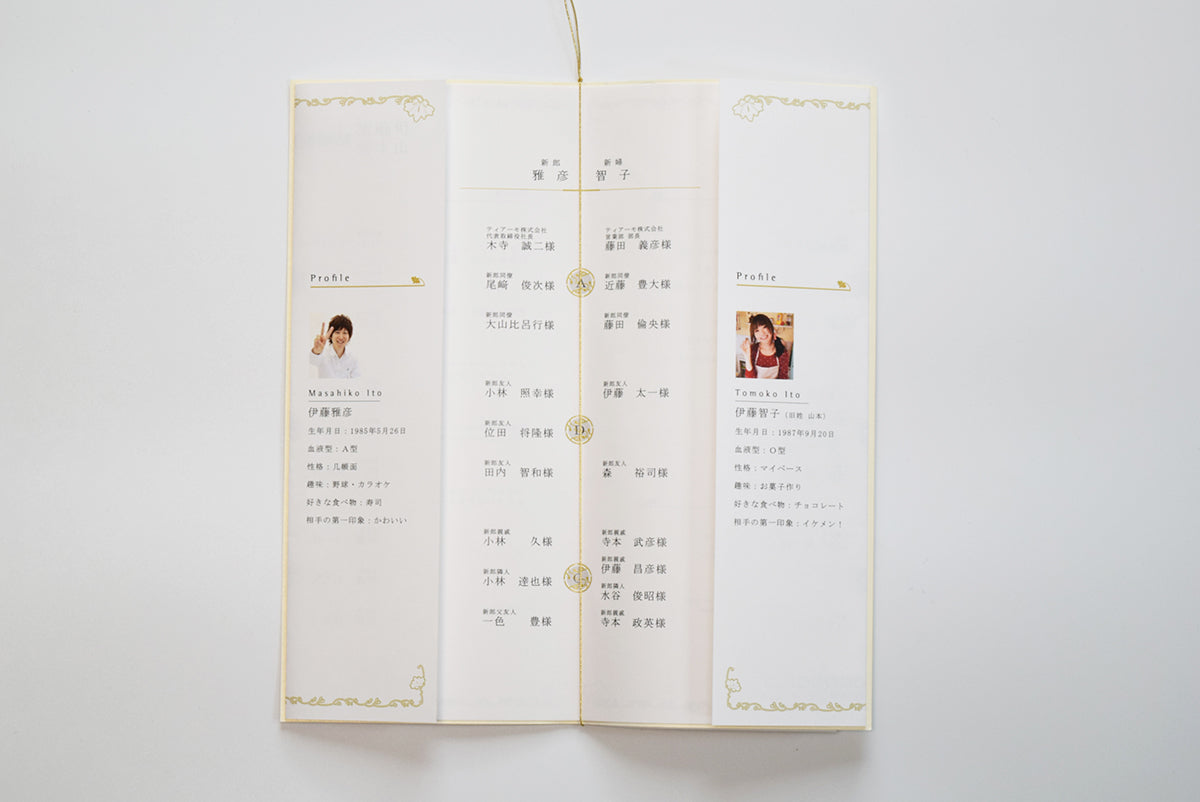 Profile
Masahiko Ito
伊藤雅彦
生年月日：1985年5月26日
血液型：A型
性格：几帳面
趣味：野球・カラオケ
好きな食べ物：寿司
相手の第一印象：かわいい
新郎 新婦
雅彦 智子
ティアーモ株式会社
代表取締役社長
木寺 誠二様
ティアーモ株式会社
営業部 部長
藤田 義彦様
新郎同僚
尾﨑 俊次様
A
新郎同僚
近藤 豊大様
新郎同僚
大山比呂行様
新郎同僚
藤田 倫央様
新郎友人
小林 照幸様
新郎友人
伊藤 太一様
新郎友人
位田 将隆様
D
新郎友人
田内 智和様
新郎友人
森 裕司様
新郎親戚
小林 久様
新郎親戚
寺本 武彦様
新郎親戚
伊藤 昌彦様
新郎隣人
小林 達也様
新郎隣人
水谷 俊昭様
新郎父友人
一色 豊様
新郎親戚
寺本 政英様
Profile
Tomoko Ito
伊藤智子（旧姓 山本）
生年月日：1987年9月20日
血液型：O型
性格：マイペース
趣味：お菓子作り
好きな食べ物：チョコレート
相手の第一印象：イケメン！